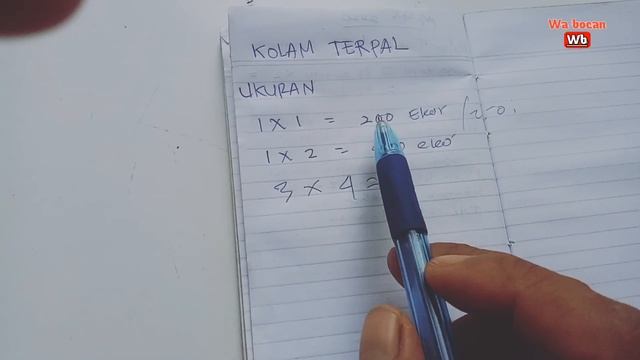 Wa bocan
Wb
KOLAM TERPAL
UKURAN
1 X 1 = 200 Ekor
1 X 2 =
3 X 4 =